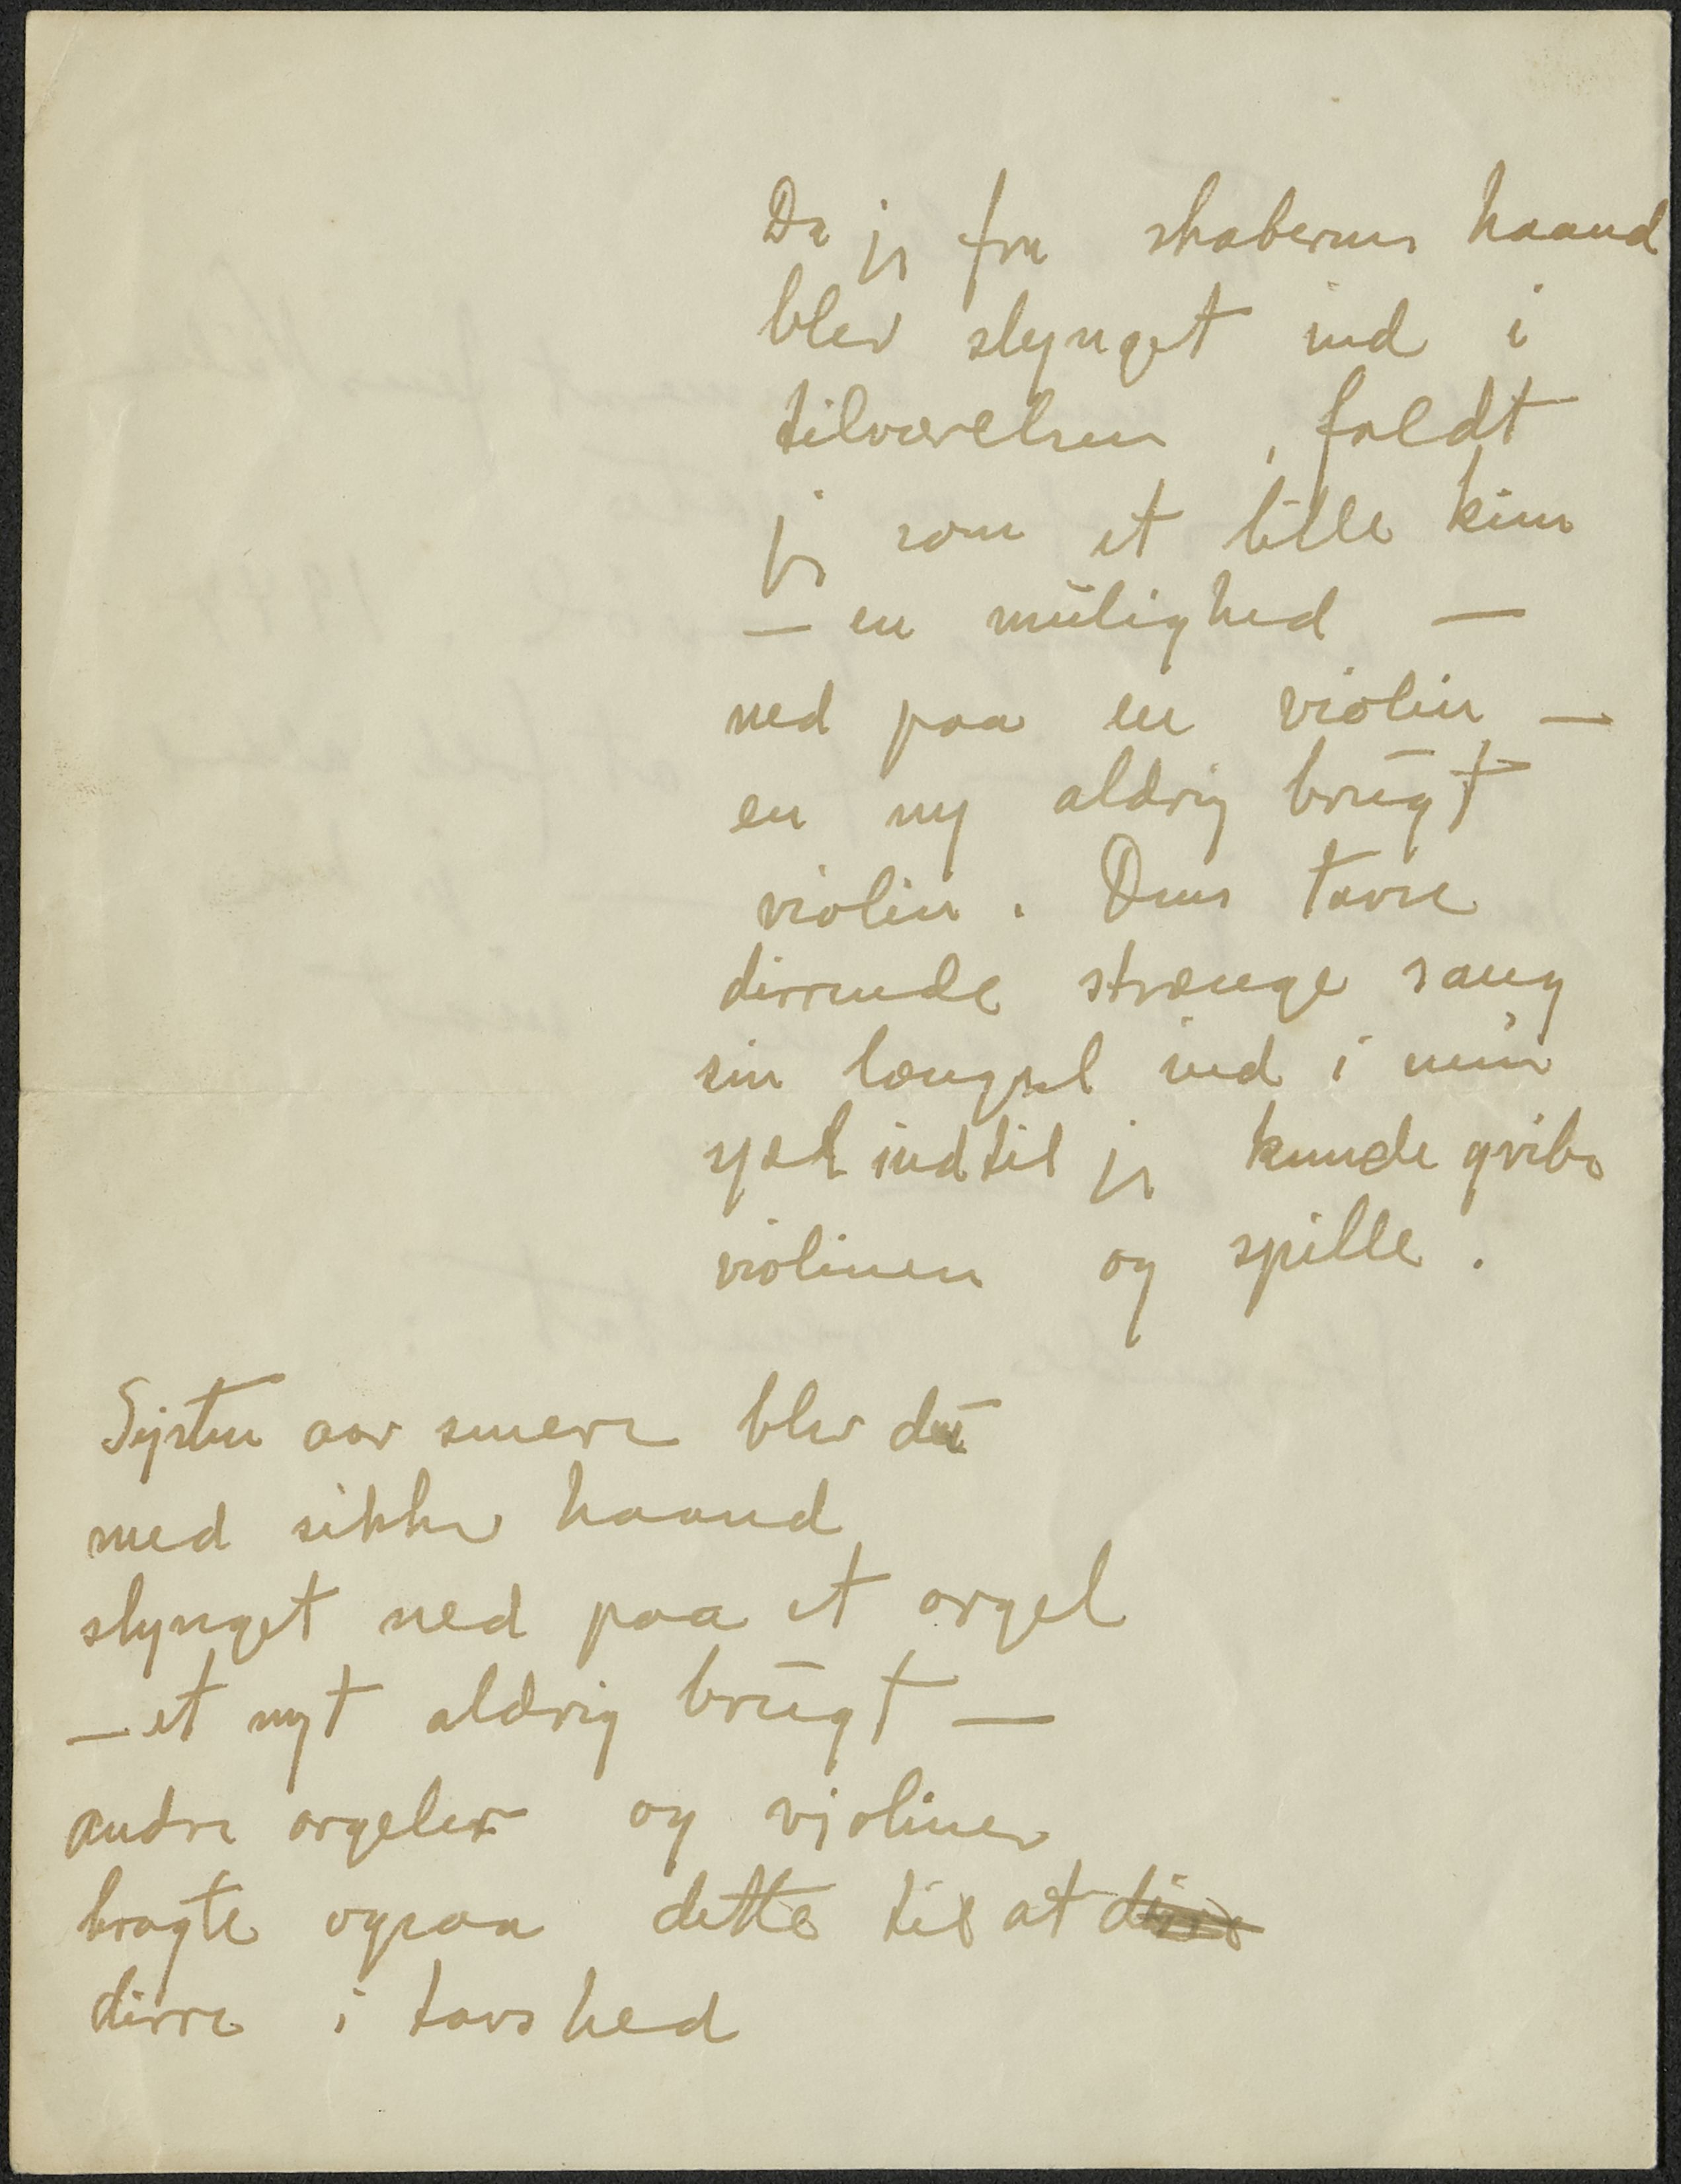 Da jeg fra skaberens haand
blev slynget ind i
tilværelsen, faldt
jeg som et lille kim
— en mulighed —
ned paa en violin —
en ny aldrig brugt
violin. Dens tavse
dirrende strænge sang
sin længsel ind i min
sjæl indtil jeg kunde gribe
violinen og spille.
Sejsten aar senere blev du
med sikker haand
slynget ned paa et orgel
— et nyt aldrig brugt —
andre orgeler og violiner
bragte ogsaa dette til at dirre
dirre i tavshed